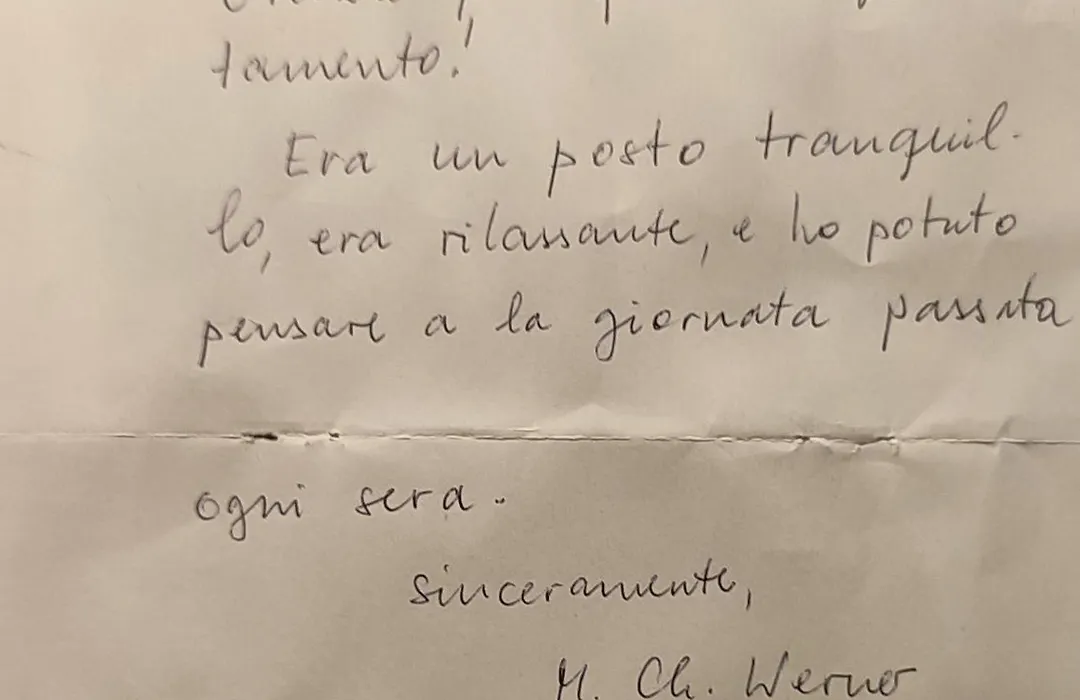 tamento!
Era un posto tranquil-
lo, era rilassante, e ho potuto
pensare a la giornata passata
ogni sera.
sinceramente,
M. Ch. Werner